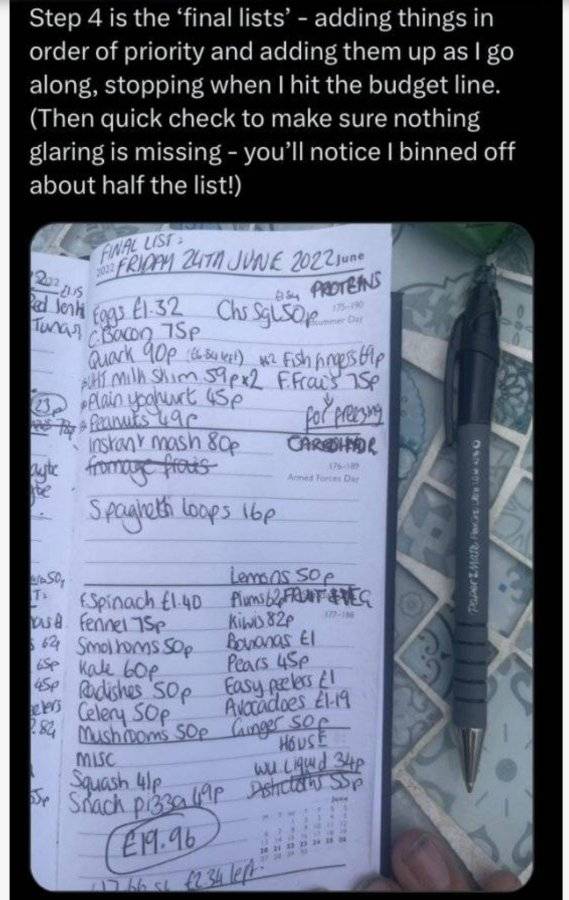 Step 4 is the ‘final lists’ - adding things in
order of priority and adding them up as I go
along, stopping when I hit the budget line.
(Then quick check to make sure nothing
glaring is missing - you’ll notice I binned off
about half the list!)
FINAL LIST:
2022 FRIDAY 24TH JUNE 2022 June
PROTEINS
175-190
Eggs £1.32 Chs Sgl 50p
C.Bacon 75p
Quark 90p x2 Fish fingers 69p
UHT Milk Skim 59p x2 F.Frais 75p
Plain yoghurt 45p
Peanuts 49p for freezing
Instant mash 80p
fromage frais
176-189
Armed Forces Day
Spaghetti loops 16p
Lemons 50p
F.Spinach £1.40 Plums 62 FRUIT & VEG
Fennel 75p Kiwis 82p
177-188
Smol toms 50p Bananas £1
Kale 60p Pears 45p
Radishes 50p Easy peelers £1
Celery 50p Avocadoes £1.19
Mushrooms 50p Ginger 50p
HOUSE
MISC WU Liquid 34p
Squash 41p Dishcloths 55p
Snack pizza 49p
£19.96
£2.34 left.